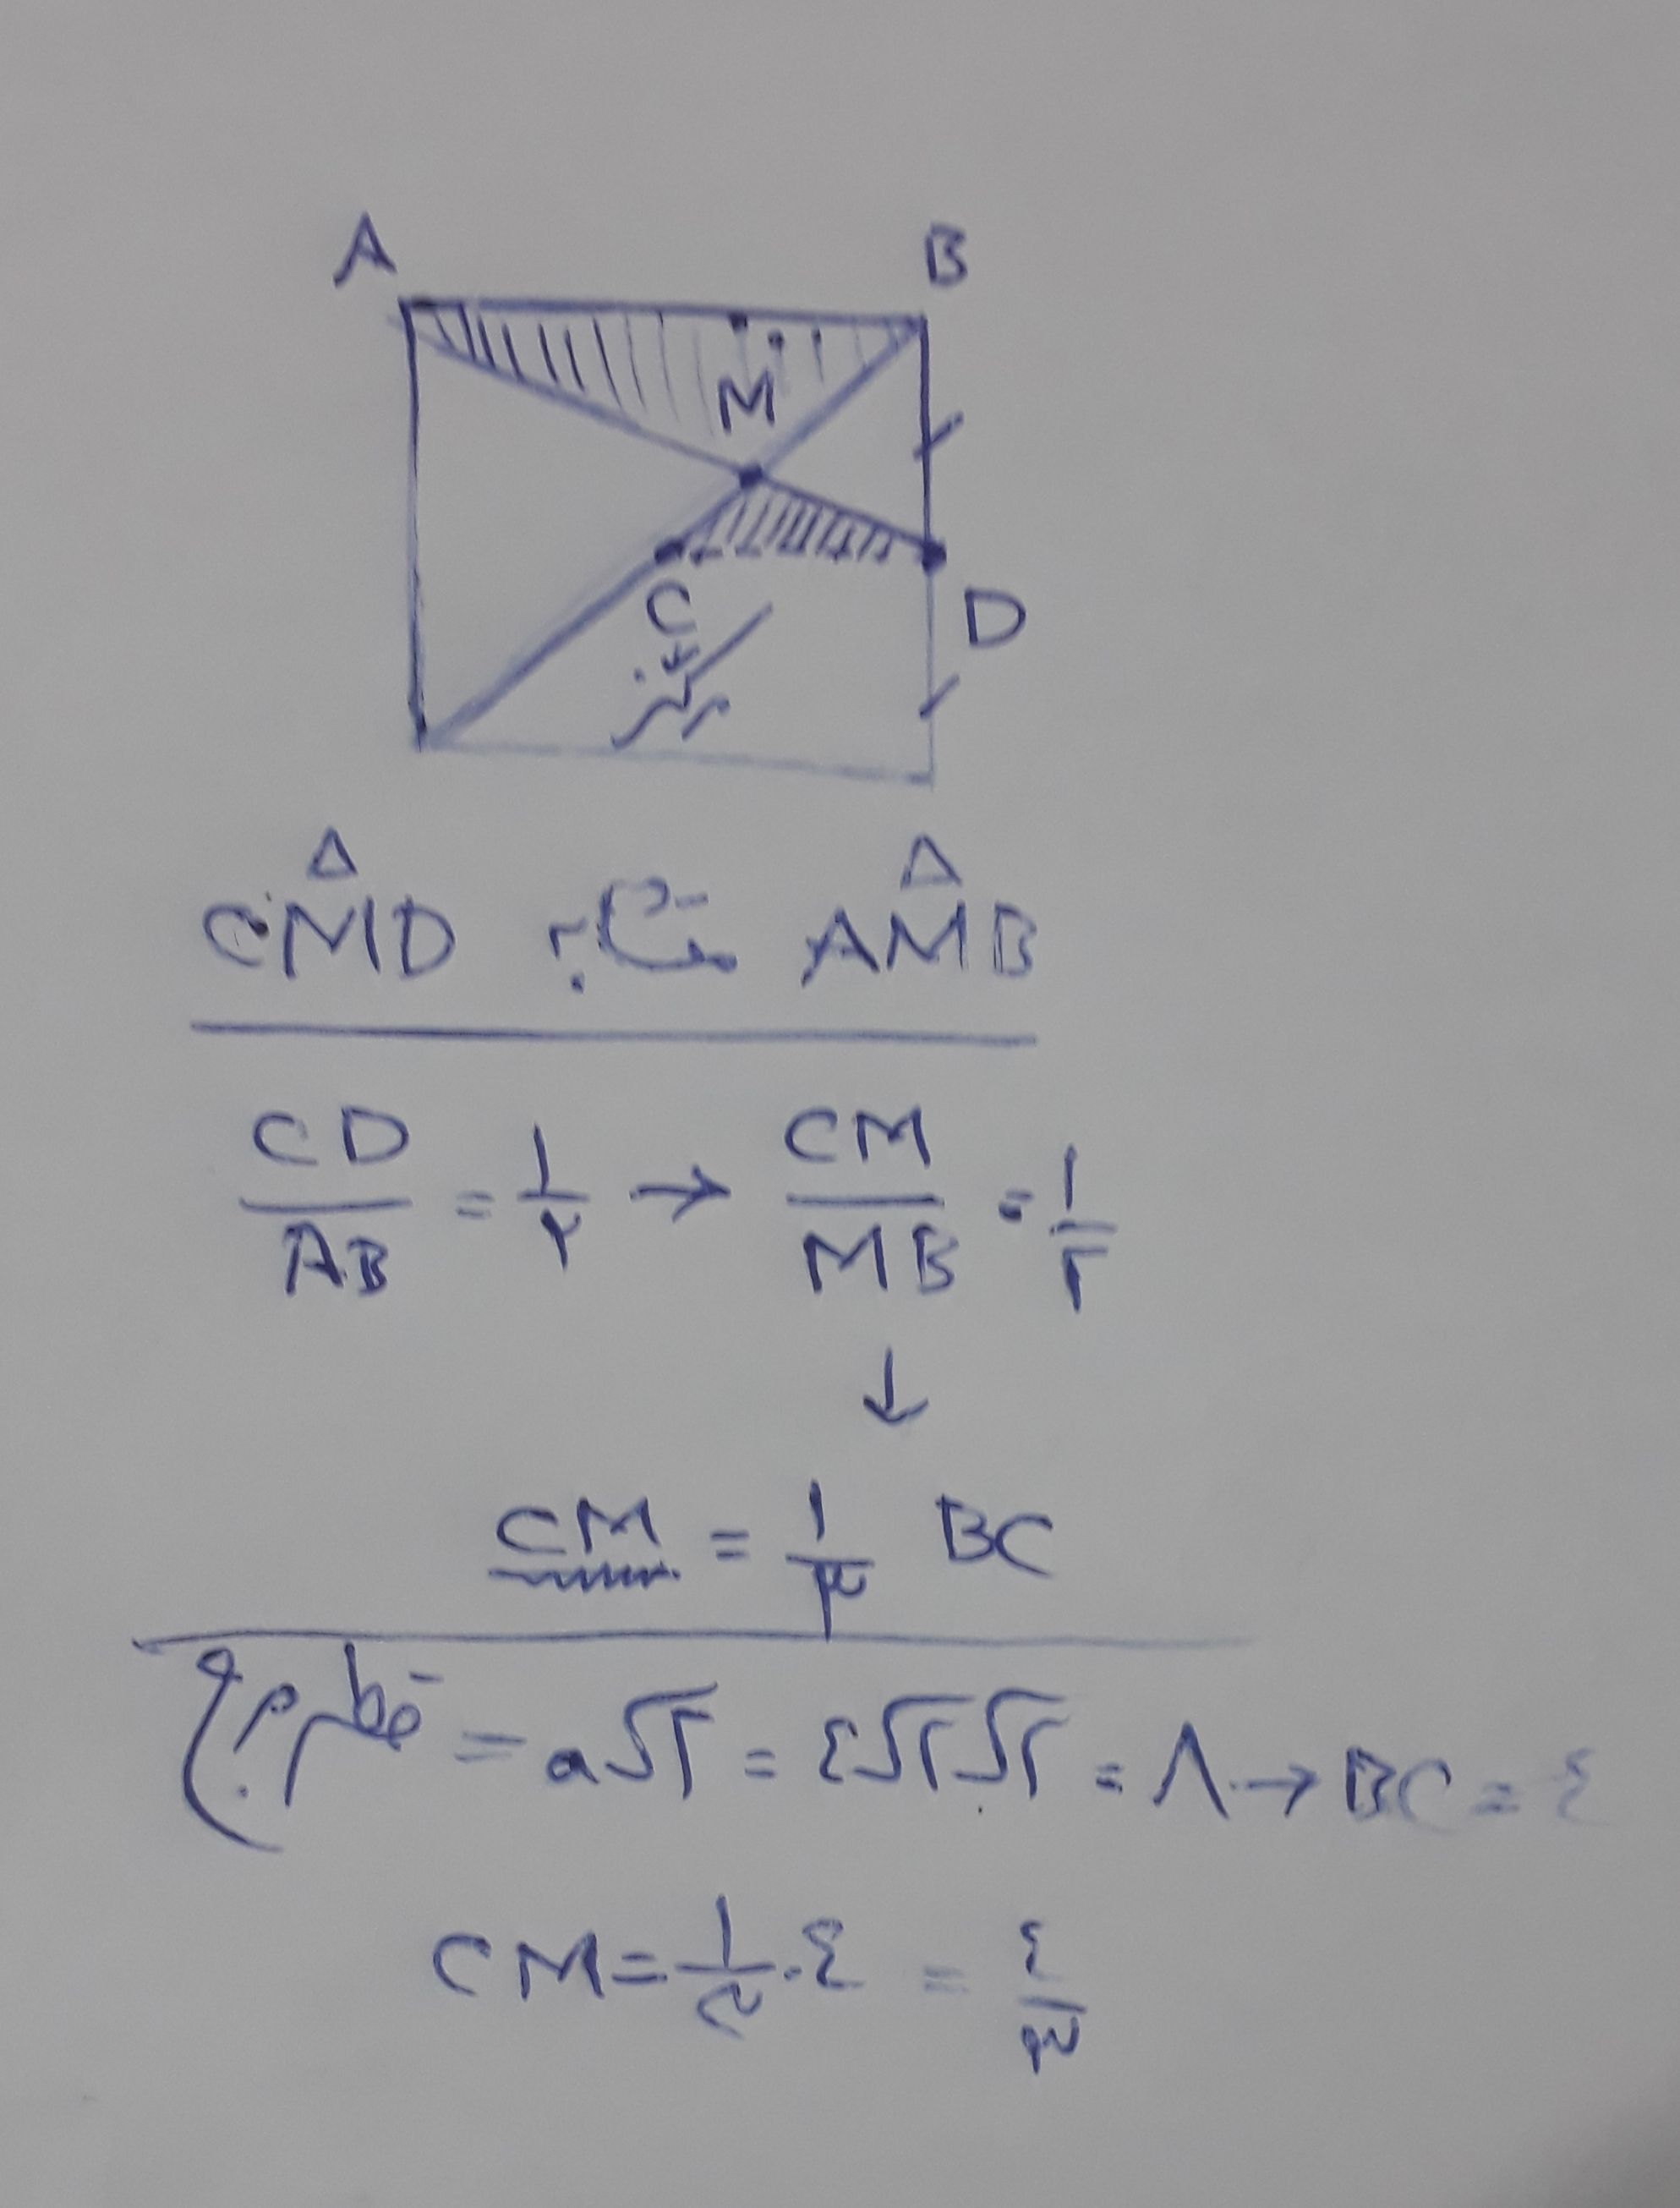 A B
M
C D
مرکز
CMD متشابه AMB
CD/AB = ۱/۲ → CM/MB = ۱/۲
↓
CM = ۱/۳ BC
قطر مربع = a√۲ = ٤√۲√۲ = ۸ → BC = ٤
CM = ۱/۳ · ٤ = ٤/۳